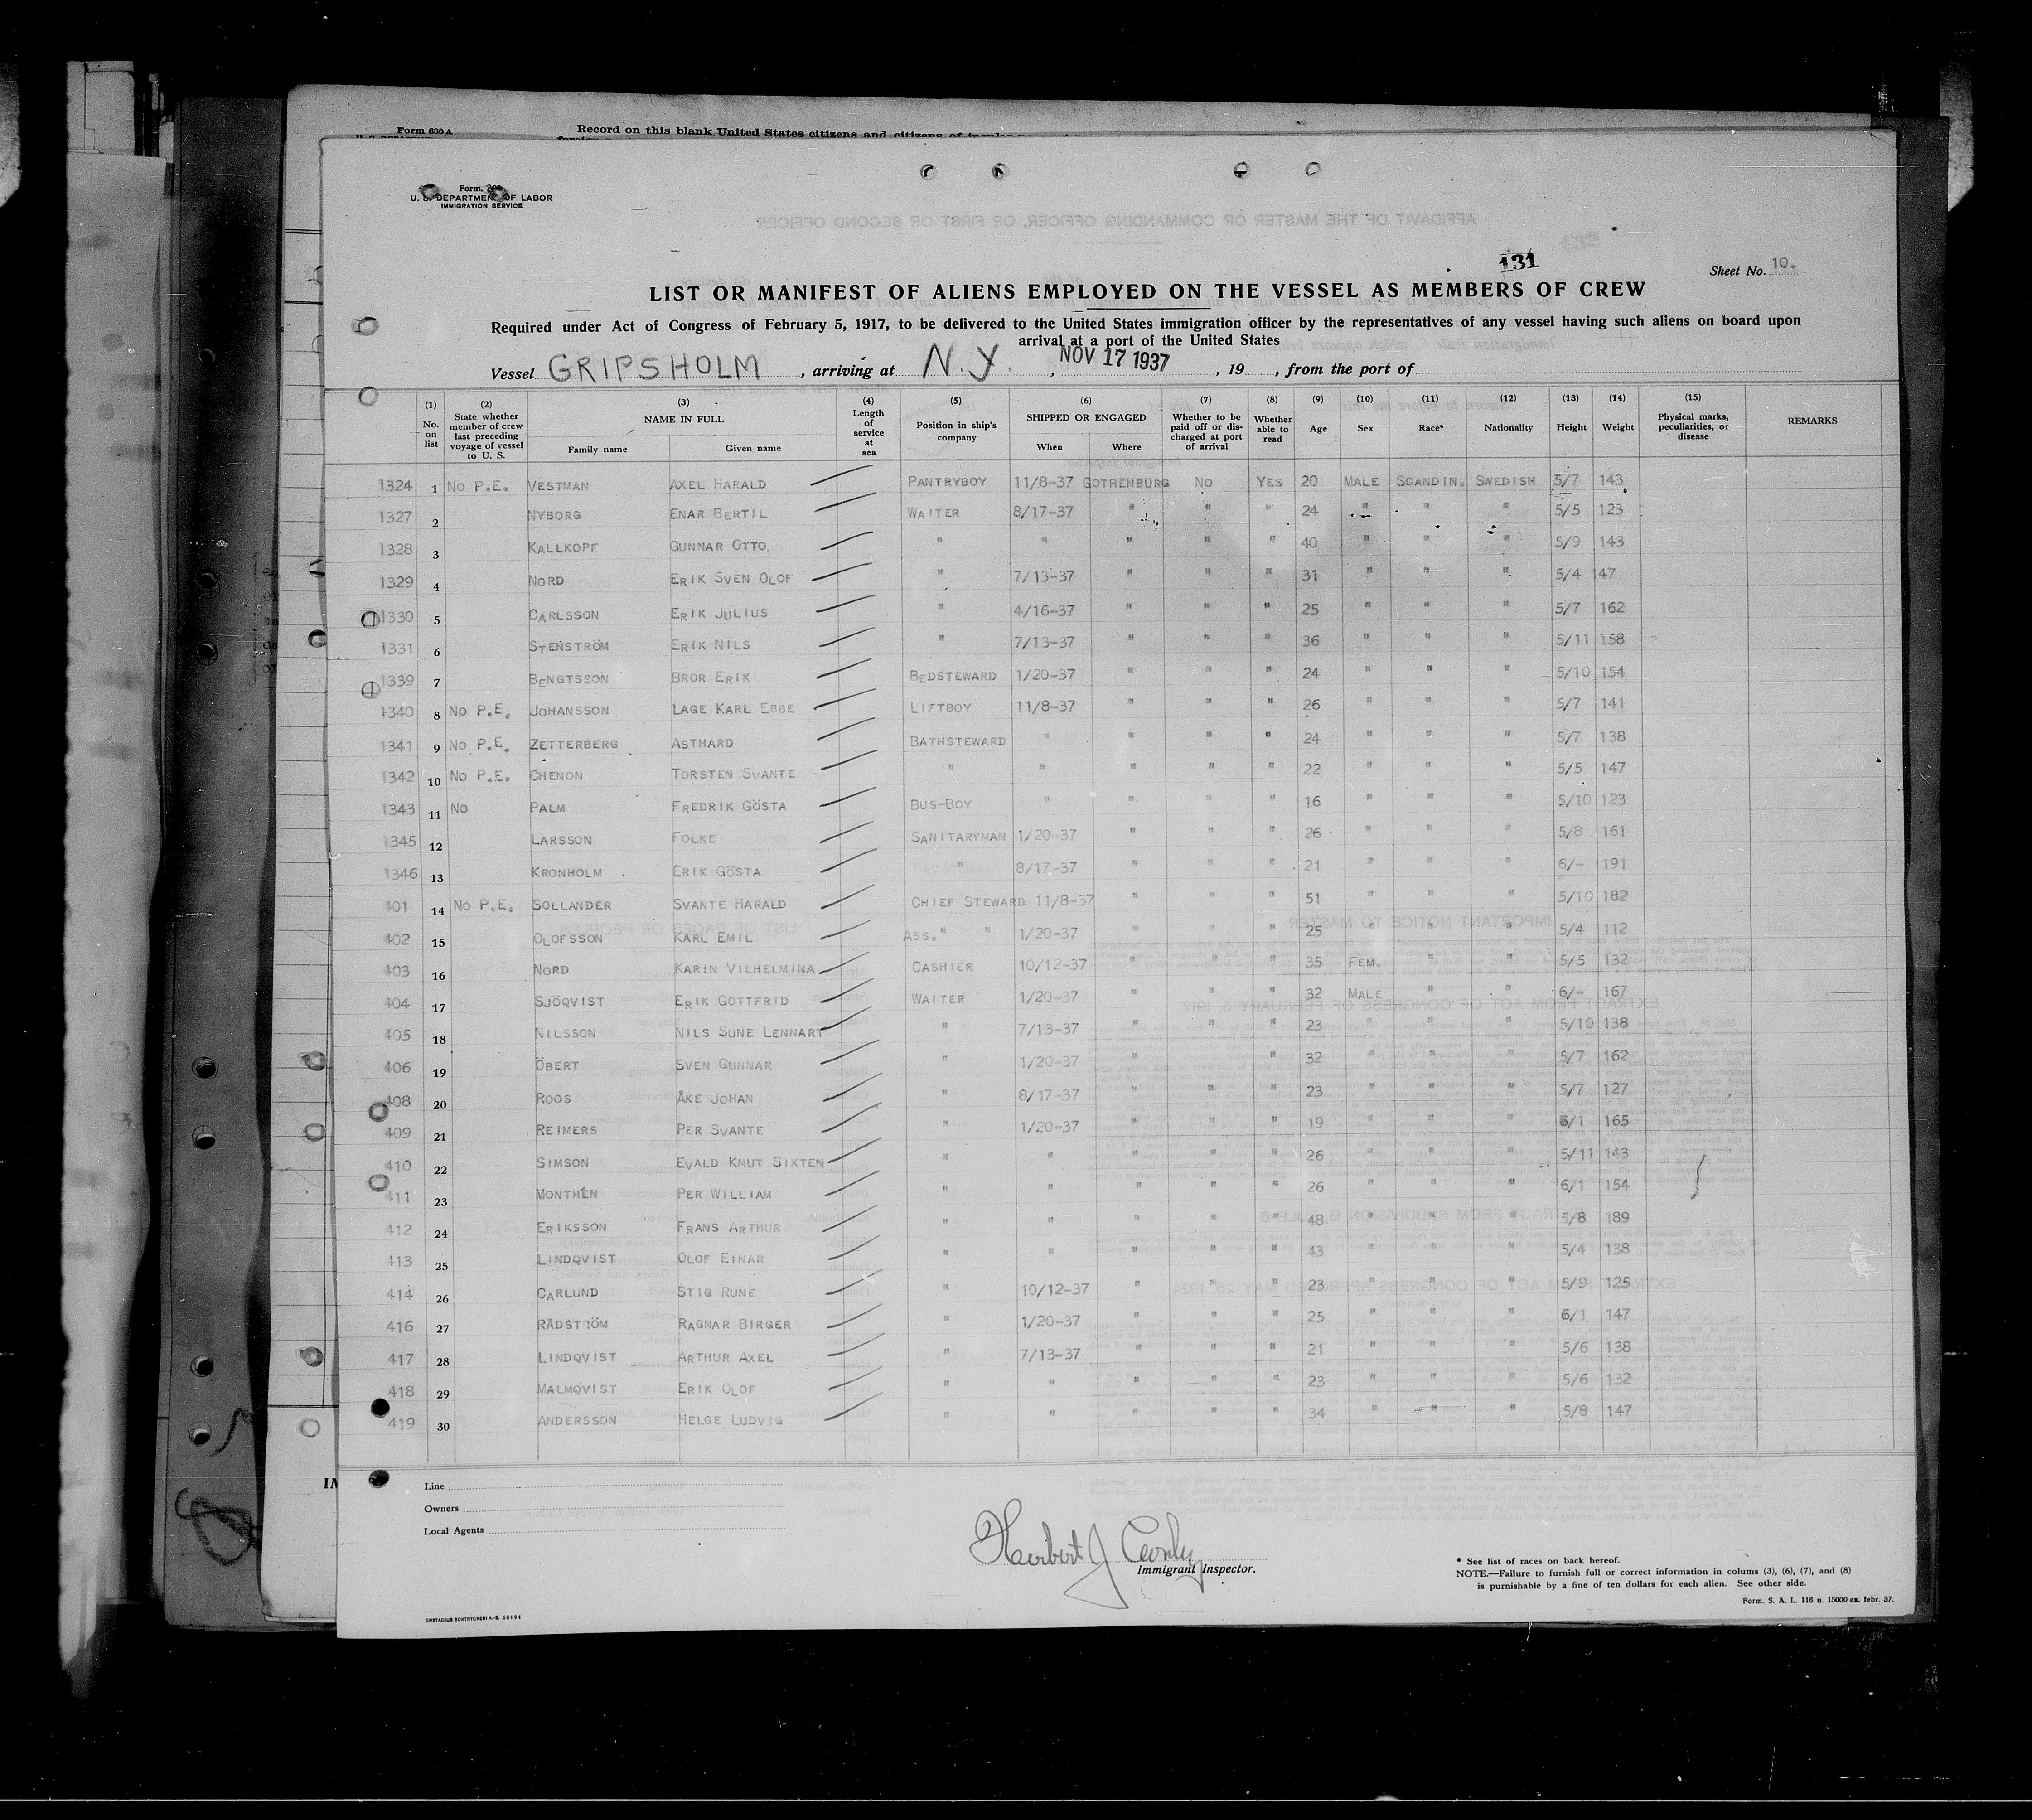 Form 630 A
Record on this blank United States citizens and citizens of
Form.
U. S. DEPARTMENT OF LABOR
IMMIGRATION SERVICE
131
Sheet No. 10.
LIST OR MANIFEST OF ALIENS EMPLOYED ON THE VESSEL AS MEMBERS OF CREW
Required under Act of Congress of February 5, 1917, to be delivered to the United States immigration officer by the representatives of any vessel having such aliens on board upon
arrival at a port of the United States
Vessel GRIPSHOLM, arriving at N.Y., NOV 17 1937, 19 , from the port of
(1) No. on list (2) State whether member of crew last preceding voyage of vessel to U. S. (3) NAME IN FULL Family name Given name (4) Length of service at sea (5) Position in ship's company (6) SHIPPED OR ENGAGED When Where (7) Whether to be paid off or discharged at port of arrival (8) Whether able to read (9) Age (10) Sex (11) Race* (12) Nationality (13) Height (14) Weight (15) Physical marks, peculiarities, or disease REMARKS
1324 1 No P.E. VESTMAN AXEL HARALD PANTRYBOY 11/8-37 GOTHENBURG No YES 20 MALE SCANDIN. SWEDISH 5/7 143
1327 2 NYBORG ENAR BERTIL WAITER 8/17-37 " " " 24 " " " 5/5 123
1328 3 KALLKOPF GUNNAR OTTO. " " " " " 40 " " " 5/9 143
1329 4 NORD ERIK SVEN OLOF " 7/13-37 " " " 31 " " " 5/4 147
1330 5 CARLSSON ERIK JULIUS " 4/16-37 " " " 25 " " " 5/7 162
1331 6 STENSTRÖM ERIK NILS " 7/13-37 " " " 36 " " " 5/11 158
1339 7 BENGTSSON BROR ERIK BEDSTEWARD 1/20-37 " " " 24 " " " 5/10 154
1340 8 No P.E. JOHANSSON LAGE KARL EBBE LIFTBOY 11/8-37 " " " 26 " " " 5/7 141
1341 9 No P.E. ZETTERBERG ASTHARD BATHSTEWARD " " " " 24 " " " 5/7 138
1342 10 No P.E. CHENON TORSTEN SVANTE " " " " " 22 " " " 5/5 147
1343 11 No PALM FREDRIK GÖSTA BUS-BOY " " " " 16 " " " 5/10 123
1345 12 LARSSON FOLKE SANITARYMAN 1/20-37 " " " 26 " " " 5/8 161
1346 13 KRONHOLM ERIK GÖSTA " 8/17-37 " " " 21 " " " 6/- 191
401 14 No P.E. SOLLANDER SVANTE HARALD CHIEF STEWARD 11/8-37 " " " 51 " " " 5/10 182
402 15 OLOFSSON KARL EMIL ASS. " " 1/20-37 " " " 25 " " " 5/4 112
403 16 NORD KARIN VILHELMINA CASHIER 10/12-37 " " " 35 FEM. " " 5/5 132
404 17 SJÖQVIST ERIK GOTTFRID WAITER 1/20-37 " " " 32 MALE " " 6/- 167
405 18 NILSSON NILS SUNE LENNART " 7/13-37 " " " 23 " " " 5/10 138
406 19 ÖBERT SVEN GUNNAR " 1/20-37 " " " 32 " " " 5/7 162
408 20 ROOS ÅKE JOHAN " 8/17-37 " " " 23 " " " 5/7 127
409 21 REIMERS PER SVANTE " 1/20-37 " " " 19 " " " 6/1 165
410 22 SIMSON EVALD KNUT SIXTEN " " " " " 26 " " " 5/11 143
411 23 MONTHÉN PER WILLIAM " " " " " 26 " " " 6/1 154
412 24 ERIKSSON FRANS ARTHUR " " " " " 48 " " " 5/8 189
413 25 LINDQVIST OLOF EINAR " " " " " 43 " " " 5/4 138
414 26 CARLUND STIG RUNE " 10/12-37 " " " 23 " " " 5/9 125
416 27 RÅDSTRÖM RAGNAR BIRGER " 1/20-37 " " " 25 " " " 6/1 147
417 28 LINDQVIST ARTHUR AXEL " 7/13-37 " " " 21 " " " 5/6 138
418 29 MALMQVIST ERIK OLOF " " " " " 23 " " " 5/6 132
419 30 ANDERSSON HELGE LUDVIG " " " " " 34 " " " 5/8 147
Line
Owners
Local Agents
Immigrant Inspector.
* See list of races on back hereof.
NOTE.—Failure to furnish full or correct information in colums (3), (6), (7), and (8)
is punishable by a fine of ten dollars for each alien. See other side.
Form. S. A. L. 116 n. 15000 ex. febr. 37.